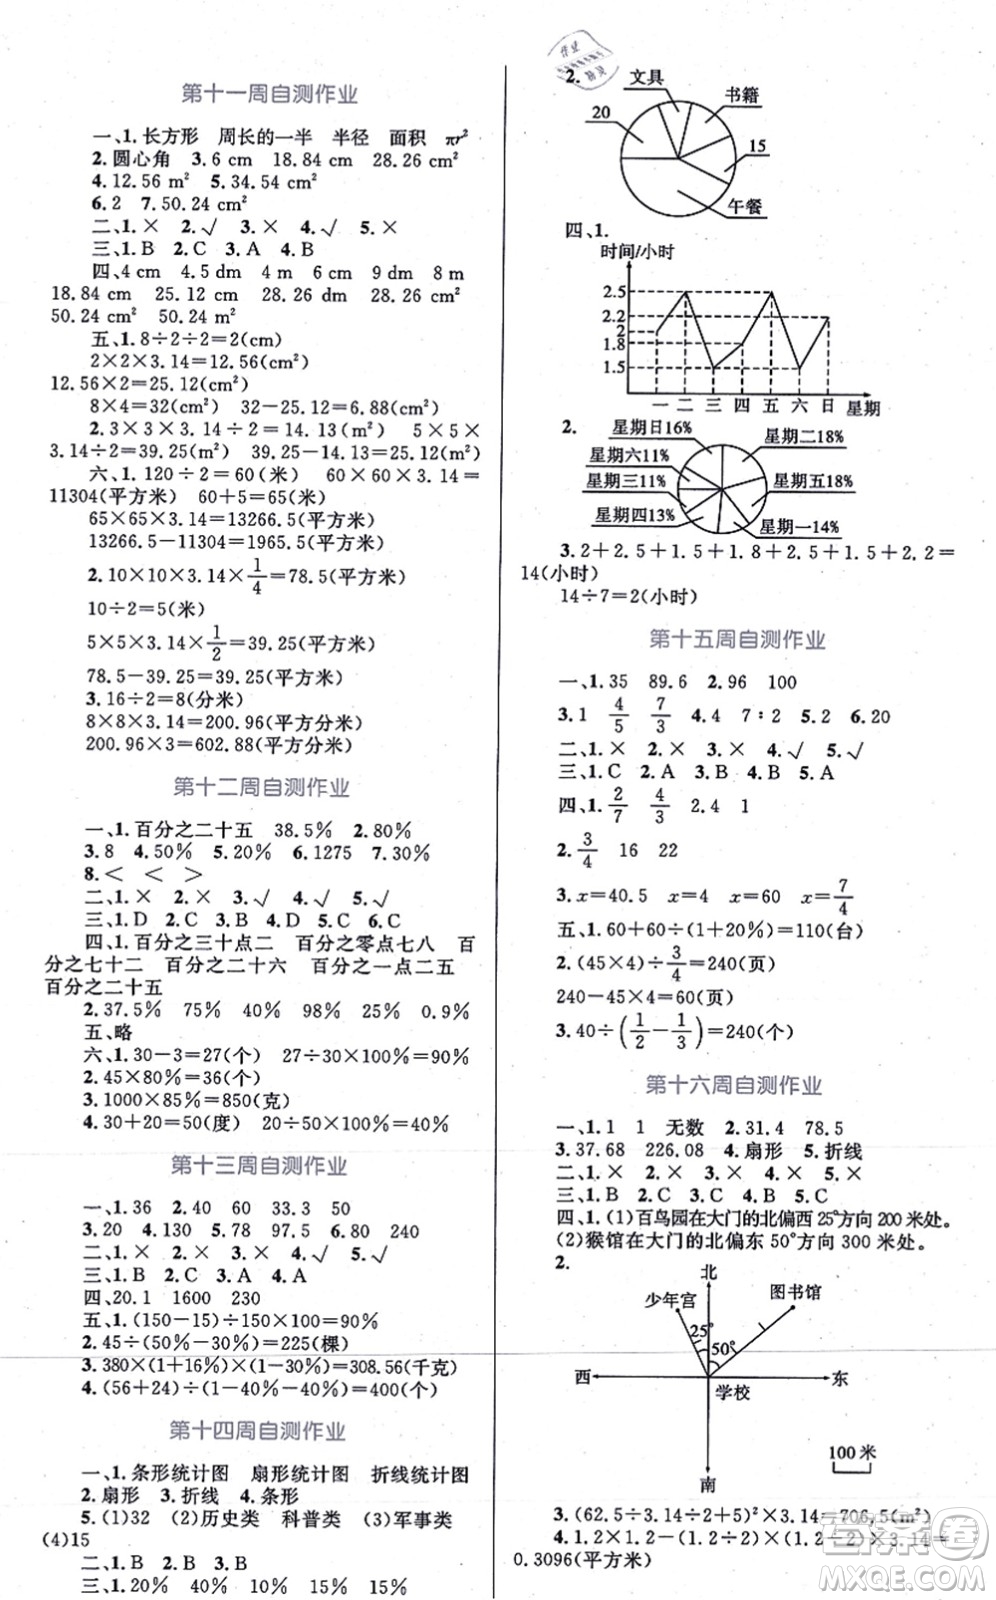 第十一周自测作业
一、1.长方形　周长的一半　半径　面积　πr²
2.圆心角　3.6 cm　18.84 cm　28.26 cm²
4.12.56 m²　5.34.54 cm²
6.2　7.50.24 cm²
二、1.×　2.√　3.×　4.√　5.×
三、1.B　2.C　3.A　4.B
四、4 cm　4.5 dm　4 m　6 cm　8 m
18.84 cm　25.12 cm　28.26 cm　28.26 cm²
50.24 cm²　50.24 cm²
五、1.8÷2÷2=2(cm)
2×2×3.14=12.56(cm²)
12.56×2=25.12(cm²)
8×4=32(cm²)　32-25.12=6.88(cm²)
2.3×3×3.14÷2=14.13(cm²)　5×5×
3.14÷2=39.25(cm²)　39.25-14.13=25.12(cm²)
六、1.120÷2=60(米)　60×60×3.14=
11304(平方米)　60+5=65(米)
65×65×3.14=13266.5(平方米)
13266.5-11304=1965.5(平方米)
2.10×10×3.14×1/4=78.5(平方米)
10÷2=5(米)
5×5×3.14×1/2=39.25(平方米)
78.5-39.25=39.25(平方米)
3.16÷2=8(分米)
8×8×3.14=200.96(平方分米)
200.96×3=602.88(平方分米)
第十二周自测作业
一、1.百分之二十五　38.5%　2.80%
3.8　4.50%　5.20%　6.1275　7.50%
8.<　<　>
二、1.×　2.×　3.√　4.√　5.×
三、1.D　2.C　3.A　4.B　5.C　6.B
四、1.百分之三十点二　百分之零点七八　百
分之七十二　百分之二十六　百分之一点二五
百分之二十五
2.37.5%　75%　40%　98%　25%　0.9%
五、略
六、1.30-3=27(个)　27÷30×100%=90%
2.45×80%=36(个)
3.1000×85%=850(克)
4.30+20=50(度)　20÷50×100%=40%
第十三周自测作业
一、1.36　2.40　60　33.3　50
3.20　4.130　5.78　97.5　6.120　240
二、1.×　2.×　3.×　4.√　5.√
三、1.B　2.C　3.A　4.A　5.C
四、20.1　1600　230
五、1.(150-15)÷150×100%=90%
2.45÷(50%-30%)=225(棵)
3.380×(1+16%)×(1-30%)=308.56(千克)
4.(56+24)÷(1-40%-40%)=400(个)
第十四周自测作业
一、1.条形统计图　扇形统计图　折线统计图
2.扇形　3.折线　4.条形
5.(1)32　(2)历史类　科普类　(3)军事类
(4)15
二、1.B　2.B　3.B
三、1.20%　10%　40%　15%　15%
作业
2.
文具
书籍
20
15
午餐
四、1.
时间/小时
2.5
2.2
2
1.8
1.5
一　二　三　四　五　六　日　星期
2.
星期日16%
星期二18%
星期六11%
星期三11%
星期五18%
星期四13%
星期一14%
3.2+2.5+1.5+1.8+2.5+1.5+2.2=
14(小时)
14÷7=2(小时)
第十五周自测作业
一、1.35　89.6　2.96　100
3.1　4/5　7/3　4.4　7∶2　5.2　6.20
二、1.×　2.×　3.×　4.√　5.√
三、1.C　2.A　3.C　4.B　5.A
四、1.2/7　4/3　2.4　1
2.3/4　16　22
3.x=40.5　x=4　x=60　x=7/4
五、1.60+60÷(1+20%)=110(台)
2.(45×4)÷3/4=240(页)
240-45×4=60(页)
3.40÷(1/2-1/3)=240(个)
第十六周自测作业
一、1.1　1　无数　2.31.4　78.5
3.37.68　226.08　4.扇形　5.折线
二、1.×　2.×　3.√　4.×　5.×
三、1.B　2.C　3.C　4.B　5.C
四、1.(1)百鸟园在大门的北偏西25°方向200米处。
(2)猴馆在大门的北偏东50°方向300米处。
2.
北
少年宫
图书馆
25°
50°
西
学校
东
100米
南
3.(62.5÷3.14÷2+5)²×3.14-706.5(m²)
4.1.2×1.2-(1.2÷2)×(1.2÷2)×3.14=
0.3096(平方米)
答案圈
MXQE.COM